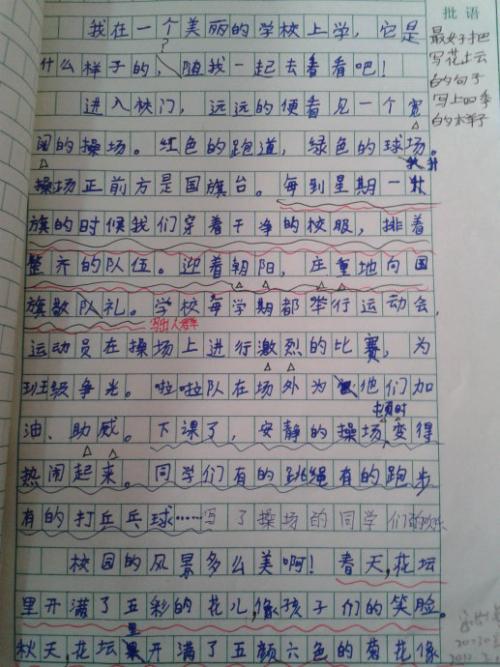 批语
最好把
写花坛
的句子
写上四季
的样子
我在一个美丽的学校上学，它是
什么样子的，随我一起去看看吧！
进入校门，远远的便看见一个宽
阔的操场。红色的跑道，绿色的球场。
操场正前方是国旗台。每到星期一升
旗的时候我们穿着干净的校服，排着
整齐的队伍。迎着朝阳，庄重地向国
旗敬队礼。学校每学期都举行运动会，
写出人群
运动员在操场上进行激烈的比赛，为
班级争光。啦啦队在场外为他们加
顿时
油、助威。下课了，安静的操场变得
热闹起来。同学们有的跳绳有的跑步
有的打乒乓球……写了操场的同学们的
校园的风景多么美啊！春天，花坛
里开满了五彩的花儿，像孩子们的笑脸。
里
秋天，花坛开满了五颜六色的菊花像